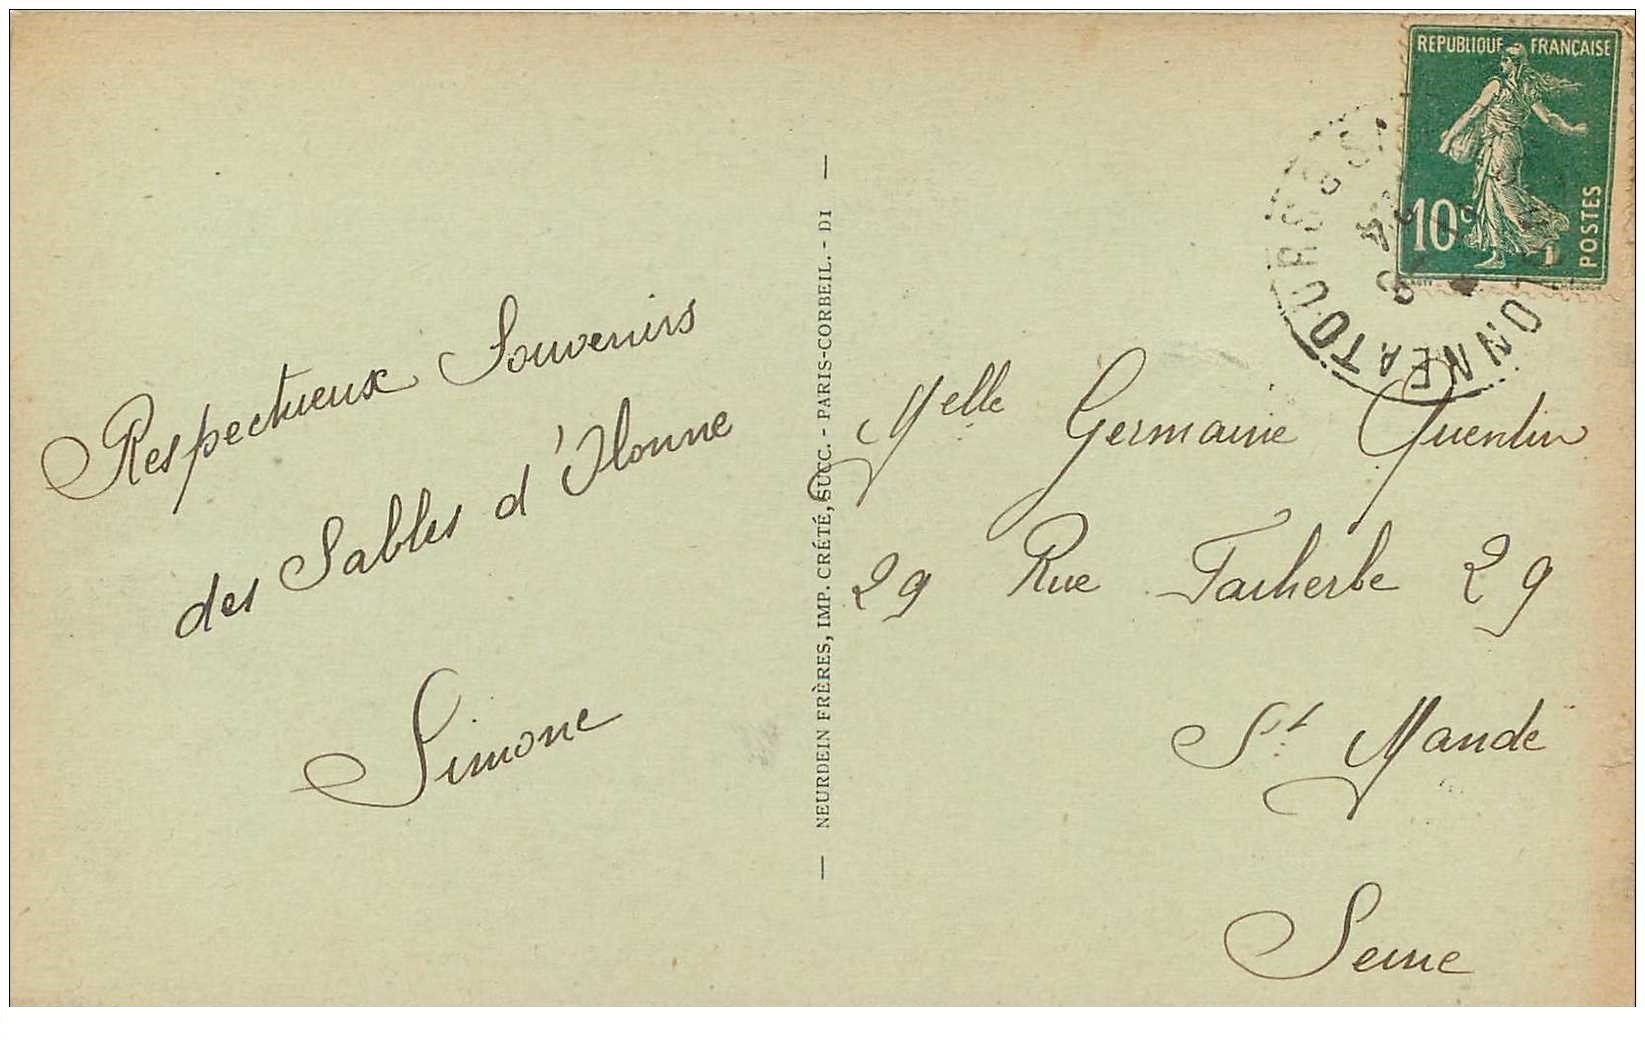 REPUBLIQUE FRANÇAISE
10c
POSTES
ONNE A TOURS
Respectueux Souvenirs
des Sables d'Olonne
Simone
— NEURDEIN FRÈRES, IMP. CRÉTÉ, SUCC. - PARIS-CORBEIL. - DI —
Melle Germaine Quentin
29 Rue Faiherbe 29
St Mandé
Seine